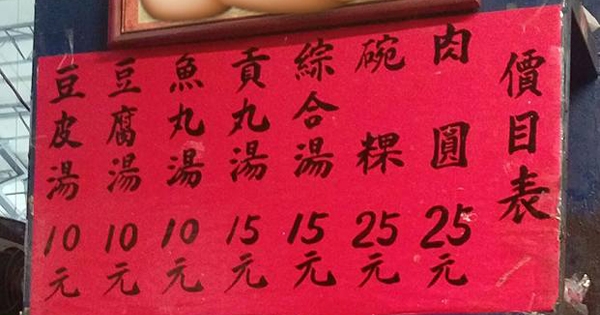 價目表
肉圓 25元
碗粿 25元
綜合湯 15元
貢丸湯 15元
魚丸湯 10元
豆腐湯 10元
豆皮湯 10元